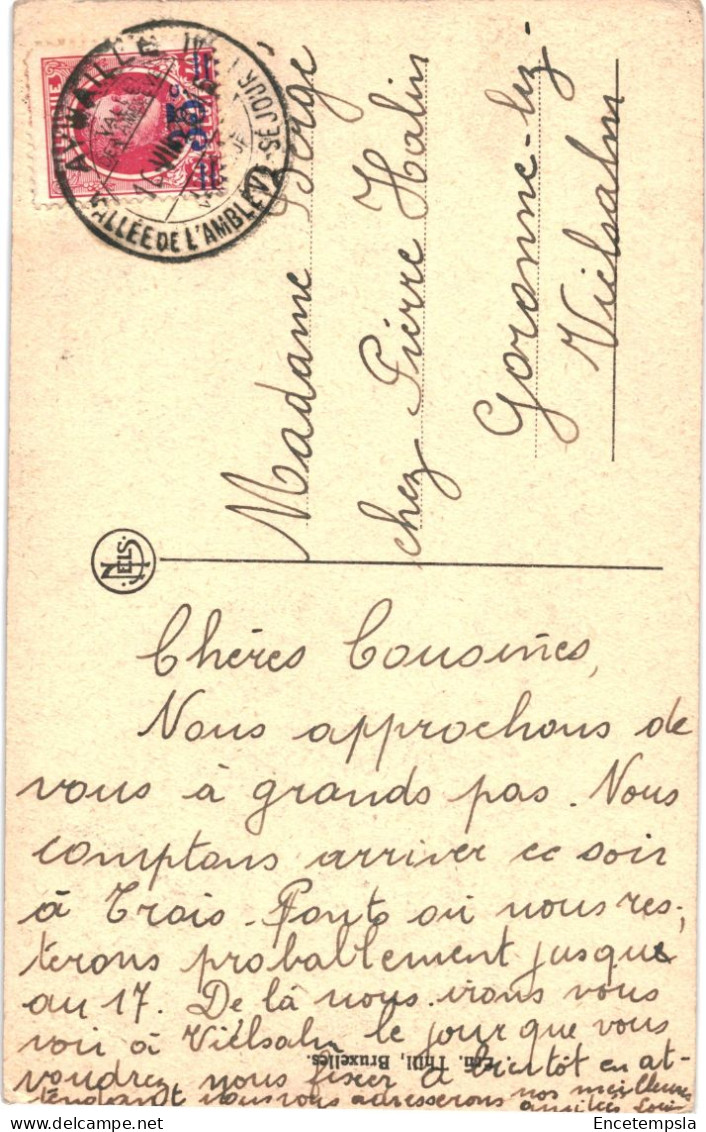 AYWAILLE
VALLÉE DE L'AMBLÈVE
SEJOUR
35
Madame
chez Pierre Halin
Goronne-lez-
Vielsalm
NELS
Chères Cousines,
Nous approchons de
vous à grands pas. Nous
comptons arriver ce soir
à Trois-Ponts où nous res-
terons probablement jusque
au 17. De là nous irons vous
voir à Vielsalm le jour que vous
voudrez nous fixer. A bientôt en at-
tendant nous vous adresserons nos meilleures
amitiés
Ern. Thill, Bruxelles.
© Encetempsla